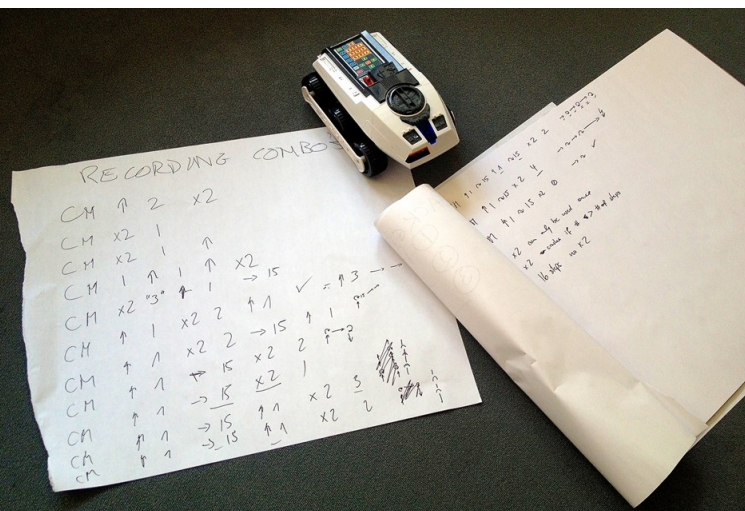 RECORDING COMBOS
CM ↑ 2 x2
CM x2 1
CM x2 1 ↑
CM 1 ↑ 1 ↑ x2
CM x2 "3" ↑ 1 → 15
CM ↑ 1 x2 2 ↑1 ✓ = ↑ 3 → —
CM ↑ 1 x2 2 → 15 ↑ 1
CM ↑ 1 → 15 x2 2
CM ↑ 1 → 15 x2 1
CM ↑ 1 → 15 ↑1 x2 3
CM ↑ 1 → 15 ↑1 x2 2
↑ 1 15 ↑ 1 15 x2 2
↑ 1 15 x2 4
↑ 1 15 x2
x2 can only be used once
x2 if # steps
16 steps no x2